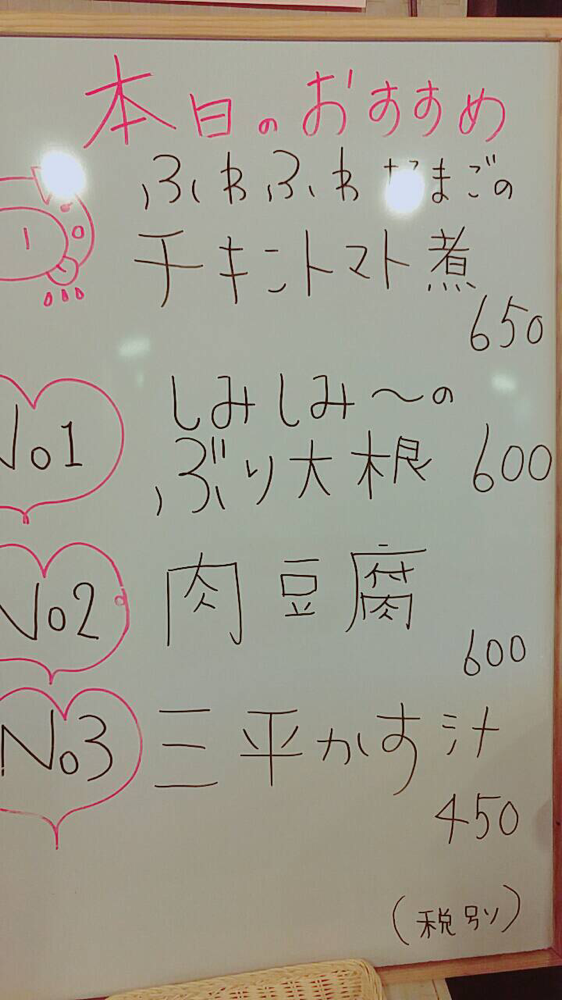 本日のおすすめ
ふわふわたまごの
チキントマト煮
650
No1
しみしみ～の
ぶり大根 600
No2
肉豆腐
600
No3
三平かす汁
450
(税別)